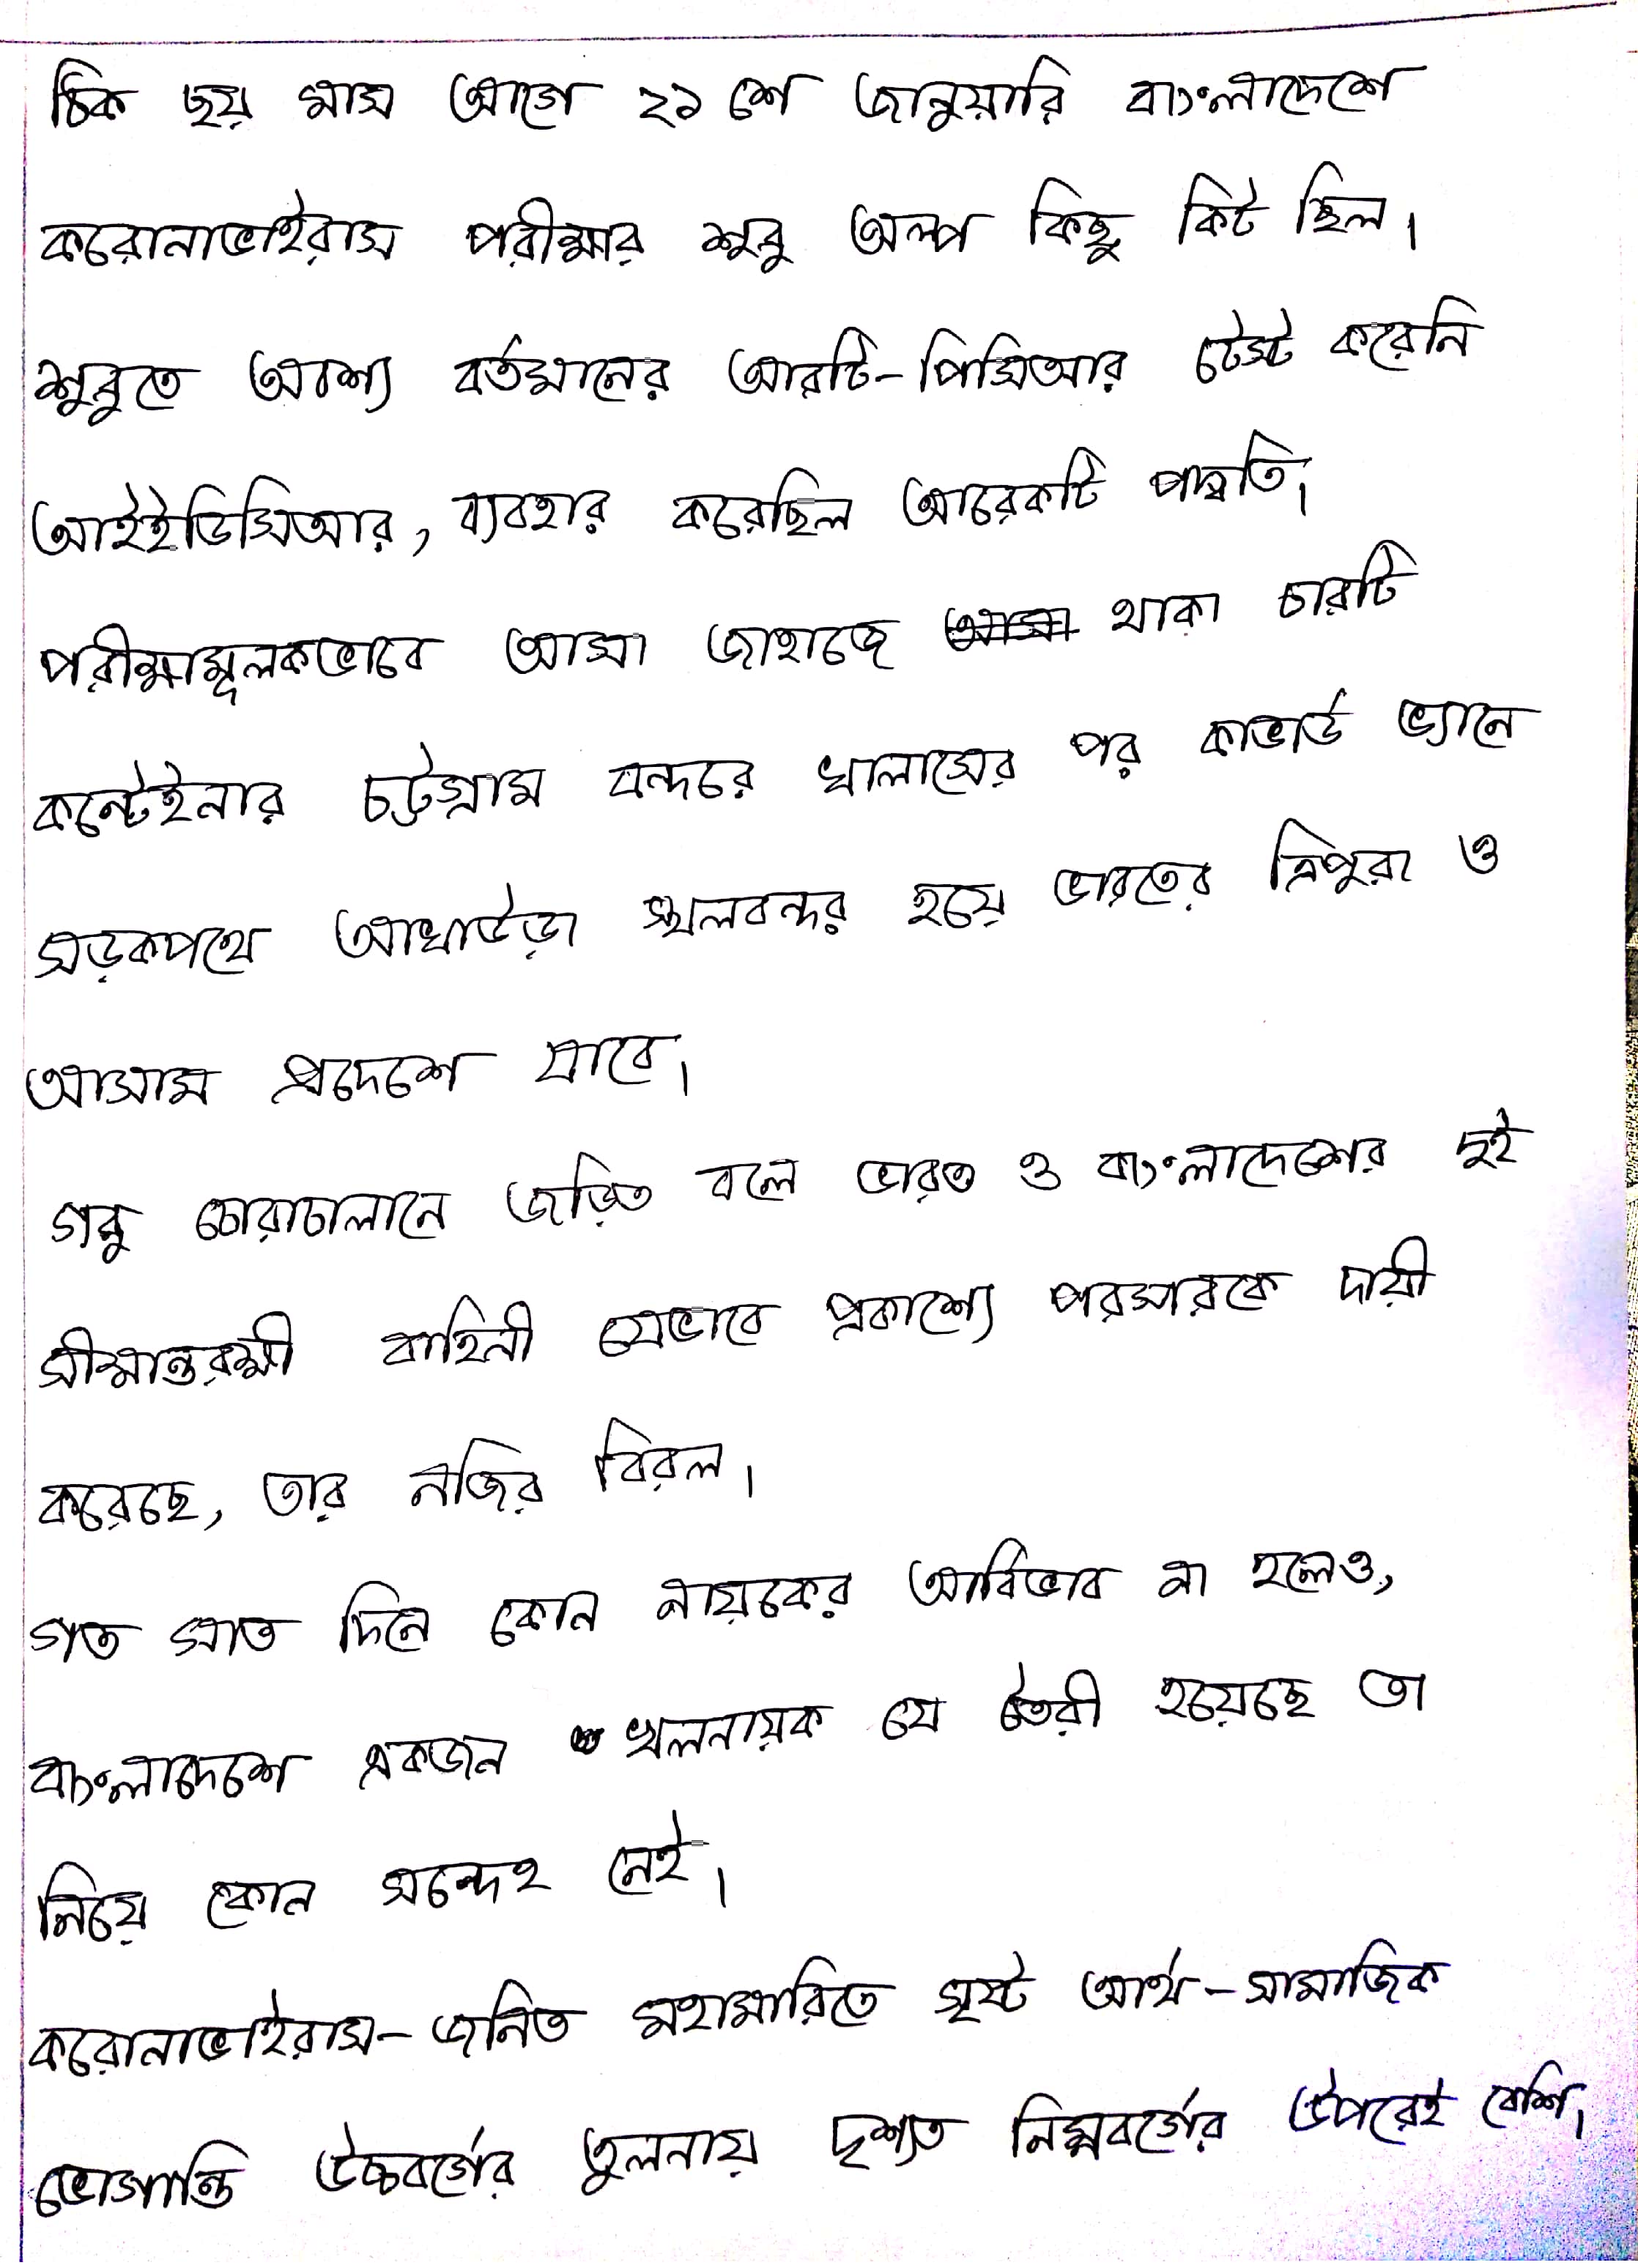 ঠিক ছয় মাস আগে ২১ শে জানুয়ারি বাংলাদেশে
করোনাভাইরাস পরীক্ষার শুরু অল্প কিছু কিট ছিল।
শুরুতে অবশ্য বর্তমানের আরটি-পিসিআর টেস্ট করেনি
আইইডিসিআর, ব্যবহার করেছিল আরেকটি পদ্ধতি।
পরীক্ষামূলকভাবে আসা জাহাজে থাকা চারটি
কন্টেইনার চট্টগ্রাম বন্দরে খালাসের পর কাভার্ড ভ্যানে
সড়কপথে আখাউড়া স্থলবন্দর হয়ে ভারতের ত্রিপুরা ও
আসাম প্রদেশে যাবে।
গরু চোরাচালানে জড়িত বলে ভারত ও বাংলাদেশের দুই
সীমান্তরক্ষী বাহিনী যেভাবে প্রকাশ্যে পরস্পরকে দায়ী
করেছে, তার নজির বিরল।
গত সাত দিনে কোন নায়কের আবির্ভাব না হলেও,
বাংলাদেশে একজন খলনায়ক যে তৈরী হয়েছে তা
নিয়ে কোন সন্দেহ নেই।
করোনাভাইরাস-জনিত মহামারিতে সৃষ্ট আর্থ-সামাজিক
ভোগান্তি উচ্চবর্গের তুলনায় দৃশ্যত নিম্নবর্গের উপরেই বেশি।